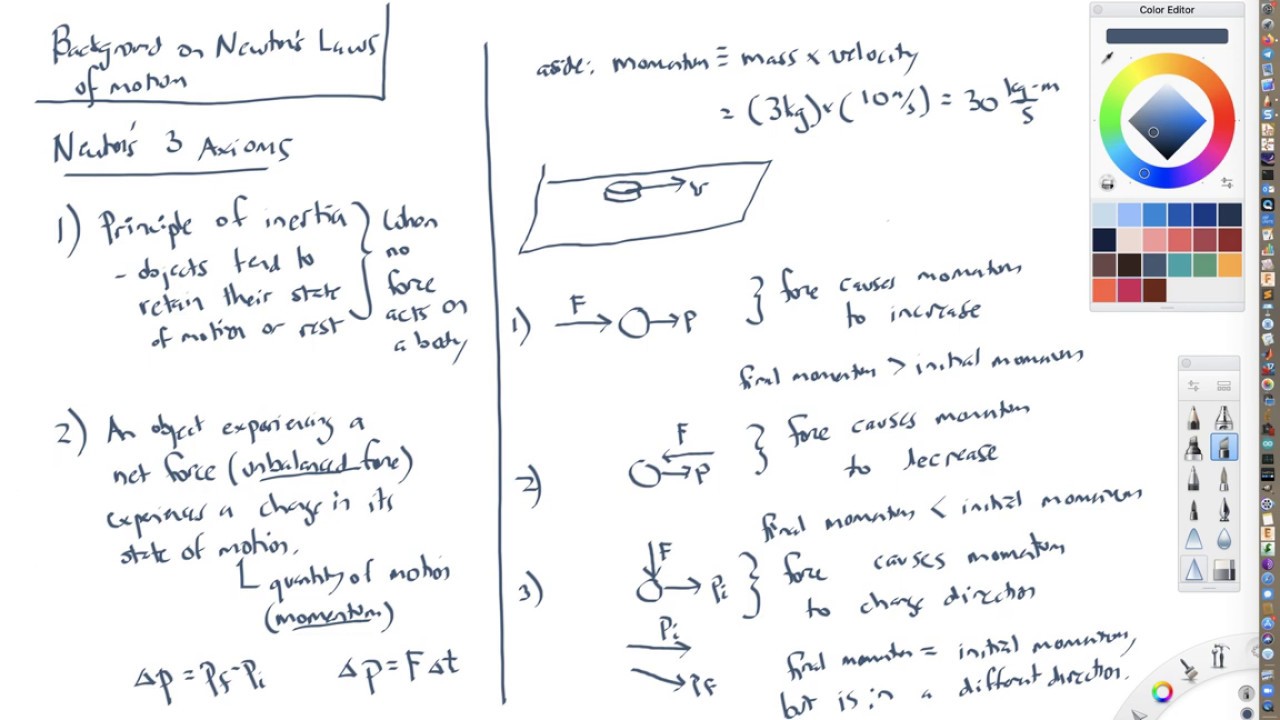 Background on Newton's Laws
of motion
Newton's 3 Axioms
1) Principle of inertia
- objects tend to
retain their state
of motion or rest
when
no
force
acts on
a body
2) An object experiencing a
net force (unbalanced force)
experiences a change in its
state of motion.
quantity of motion
(momentum)
Δp = Pf - Pi   Δp = FΔt
aside: momentum ≡ mass × velocity
= (3kg) × (10 m/s) = 30 kg-m/s
v
1) F P } force causes momentum
to increase
final momentum > initial momentum
2) F P } force causes momentum
to decrease
final momentum < initial momentum
3) F Pi } force causes momentum
to change direction
Pi
Pf
final momentum = initial momentum,
but is in a different direction.
Color Editor